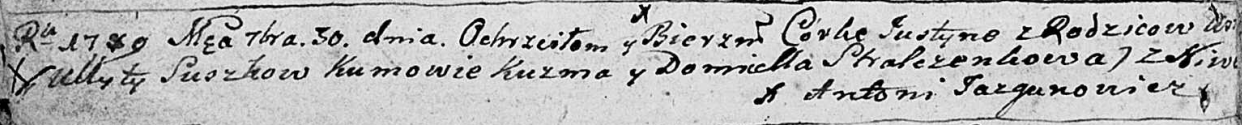 Rku 1789 Męca 7bra. 30. dnia. Ochrzciłem y Bierzm Corkę Justynę z Rodzicow
y Ullyty Suszkow Kumowie Kuzma y Domicella Stralczenkowa) z Niwk
X Antoni Jazgunowicz